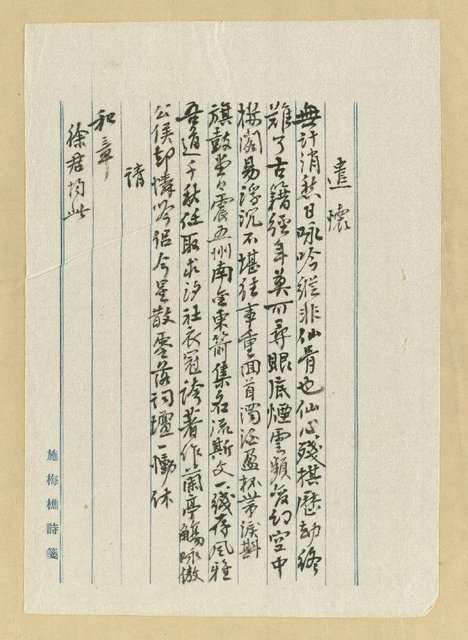 遣懷
無計消愁日咏吟縱非仙骨也仙心殘棋歷劫終
難了古籍經年莫可尋眼底煙雲頻變幻空中
樓閣易浮沉不堪往事重回首濁酒盈杯帶淚斟
旗鼓堂々震五州南金東箭集名流斯文一綫存風雅
吾道千秋任取求汐社衣冠誇著作蘭亭觴咏傲
公侯却憐吟侶今星散零落詞壇一慟休
請
和章
徐君均此
施梅樵詩箋